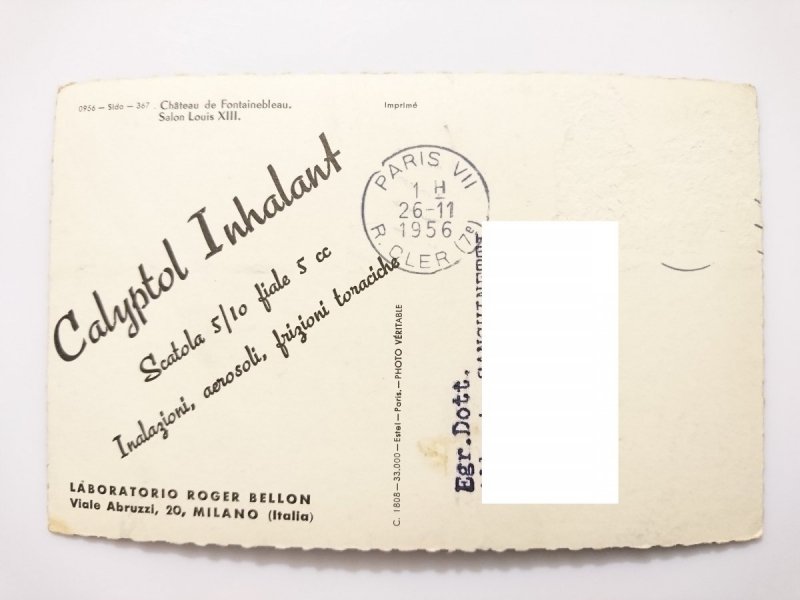 0956 — Sido — 367 . Château de Fontainebleau.
Salon Louis XIII.
Imprimé
Calyptol Inhalant
Scatola 5/10 fiale 5 cc
Inalazioni, aerosoli, frizioni toraciche
LABORATORIO ROGER BELLON
Viale Abruzzi, 20, MILANO (Italia)
C. 1808 — 33.000 — Estel — Paris. — PHOTO VÉRITABLE
PARIS VII
1 H
26-11
1956
R. CLER (7e)
Egr.Dott.